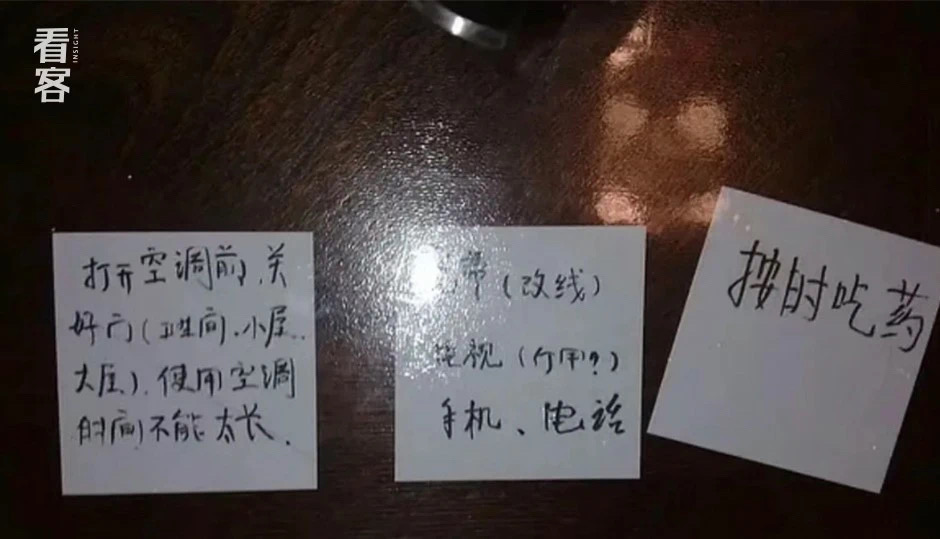 看客
INSIGHT
打开空调前，关
好门（卫生间、小屋、
大屋）。使用空调
时间不能太长、
（改线）
电视（作用？）
手机、电话
按时吃药